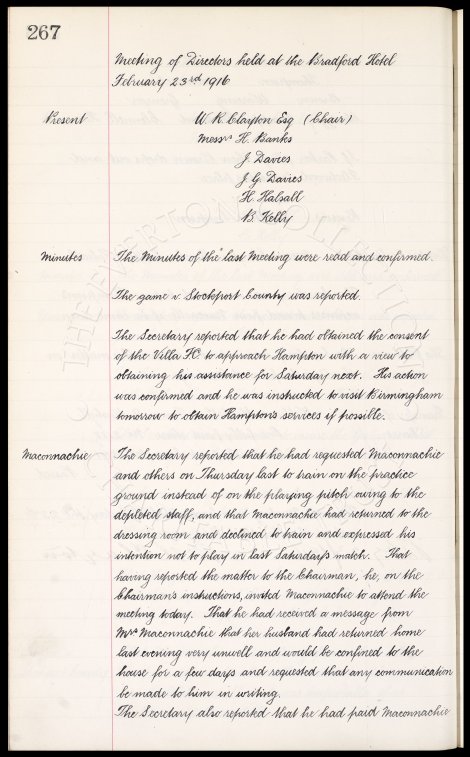 267
Meeting of Directors held at the Bradford Hotel
February 23rd 1916
Present
W. R. Clayton Esq (Chair)
Messrs H. Banks
J. Davies
J. G. Davies
H. Halsall
B. Kelly
Minutes
The Minutes of the last Meeting were read and confirmed.
The game v Stockport County was reported.
The Secretary reported that he had obtained the consent
of the Villa FC. to approach Hampton with a view to
obtaining his assistance for Saturday next. His action
was confirmed and he was instructed to visit Birmingham
tomorrow to obtain Hampton's services if possible.
Maconnachie
The Secretary reported that he had requested Maconnachie
and others on Thursday last to train on the practice
ground instead of on the playing pitch owing to the
depleted staff, and that Maconnachie had returned to the
dressing room and declined to train and expressed his
intention not to play in last Saturday's match. That
having reported the matter to the Chairman, he, on the
Chairman's instructions, invited Maconnachie to attend the
meeting today. That he had received a message from
Mrs Maconnachie that her husband had returned home
last evening very unwell and would be confined to the
house for a few days and requested that any communication
be made to him in writing.
The Secretary also reported that he had paid Maconnachie
THE EVERTON COLLECTION